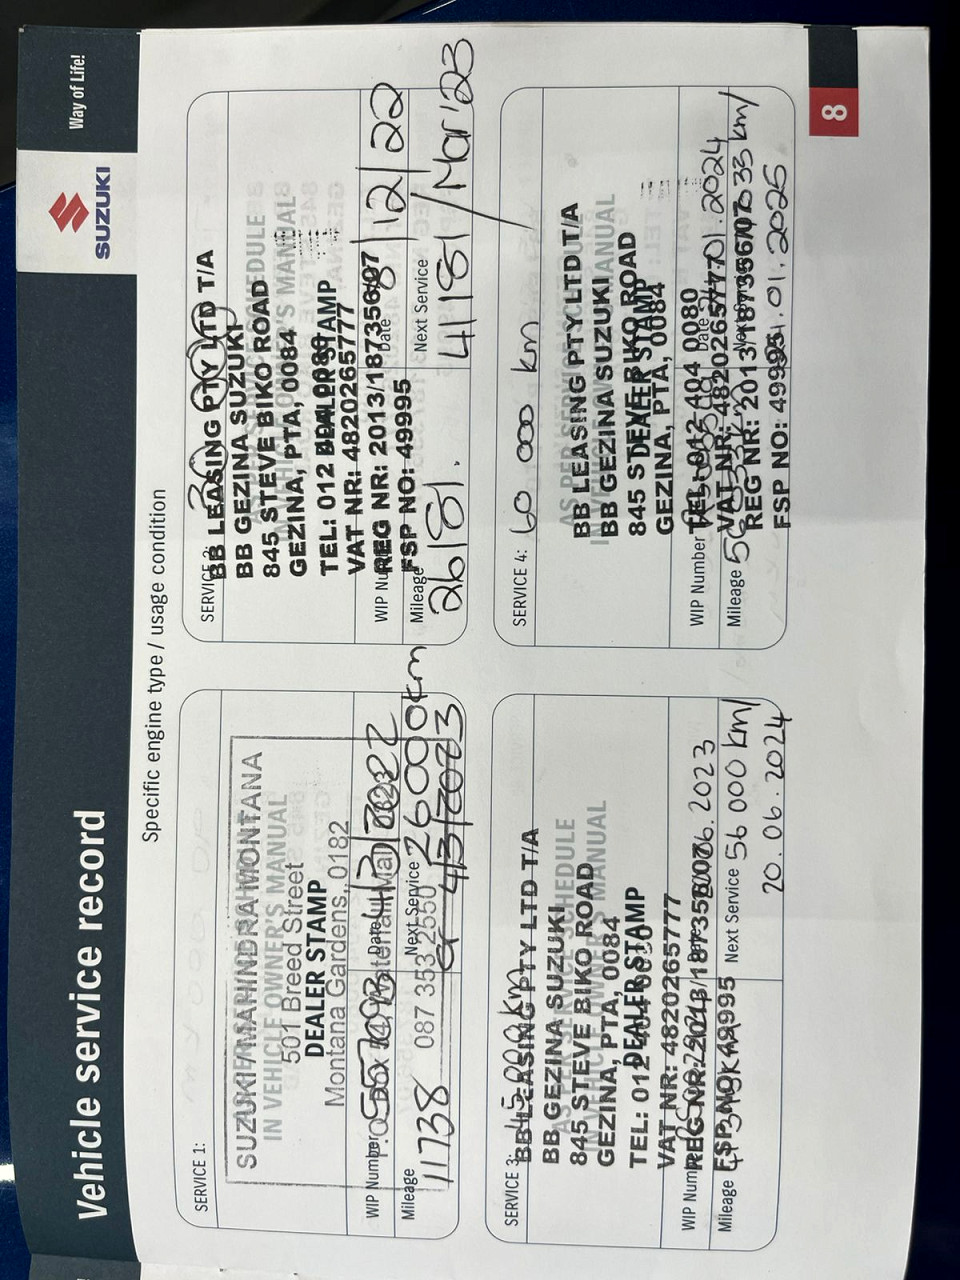 Vehicle service record
SUZUKI
Way of Life!
Specific engine type / usage condition
SERVICE 1:
SUZUKI / MAHINDRA MONTANA
IN VEHICLE OWNER'S MANUAL
501 Breed Street
DEALER STAMP
Montana Gardens, 0182
WIP Number
Date 4/3/2022
Mileage
11738
087 353 2550
Next Service 26000km
or 4/3/2023
SERVICE 2:
BB LEASING PTY LTD T/A
BB GEZINA SUZUKI
845 STEVE BIKO ROAD
GEZINA, PTA, 0084
TEL: 012
DEALER STAMP
VAT NR: 4820265777
REG NR: 2013/187356/07
FSP NO: 49995
Date 8/12/22
Mileage
26181.
Next Service
41181/Mar'23
SERVICE 3: 45 000km
BB LEASING PTY LTD T/A
BB GEZINA SUZUKI
AS PER SERVICE SCHEDULE
845 STEVE BIKO ROAD
IN VEHICLE OWNER'S MANUAL
GEZINA, PTA, 0084
DEALER STAMP
TEL: 012 404 0080
VAT NR: 4820265777
REG NR: 2013/187356/07
WIP Number
06.2023
FSP NO: 49995
Mileage
Next Service 56 000 km/
20.06.2024
SERVICE 4: 60 000 km
BB LEASING PTY LTD T/A
AS PER SERVICE SCHEDULE
BB GEZINA SUZUKI
IN VEHICLE OWNER'S MANUAL
845 STEVE BIKO ROAD
DEALER STAMP
GEZINA, PTA, 0084
TEL: 012 404 0080
WIP Number
01.2024
VAT NR: 4820265777
REG NR: 2013/187356/07
Mileage
033 km/
FSP NO: 49995
.01.2025
8